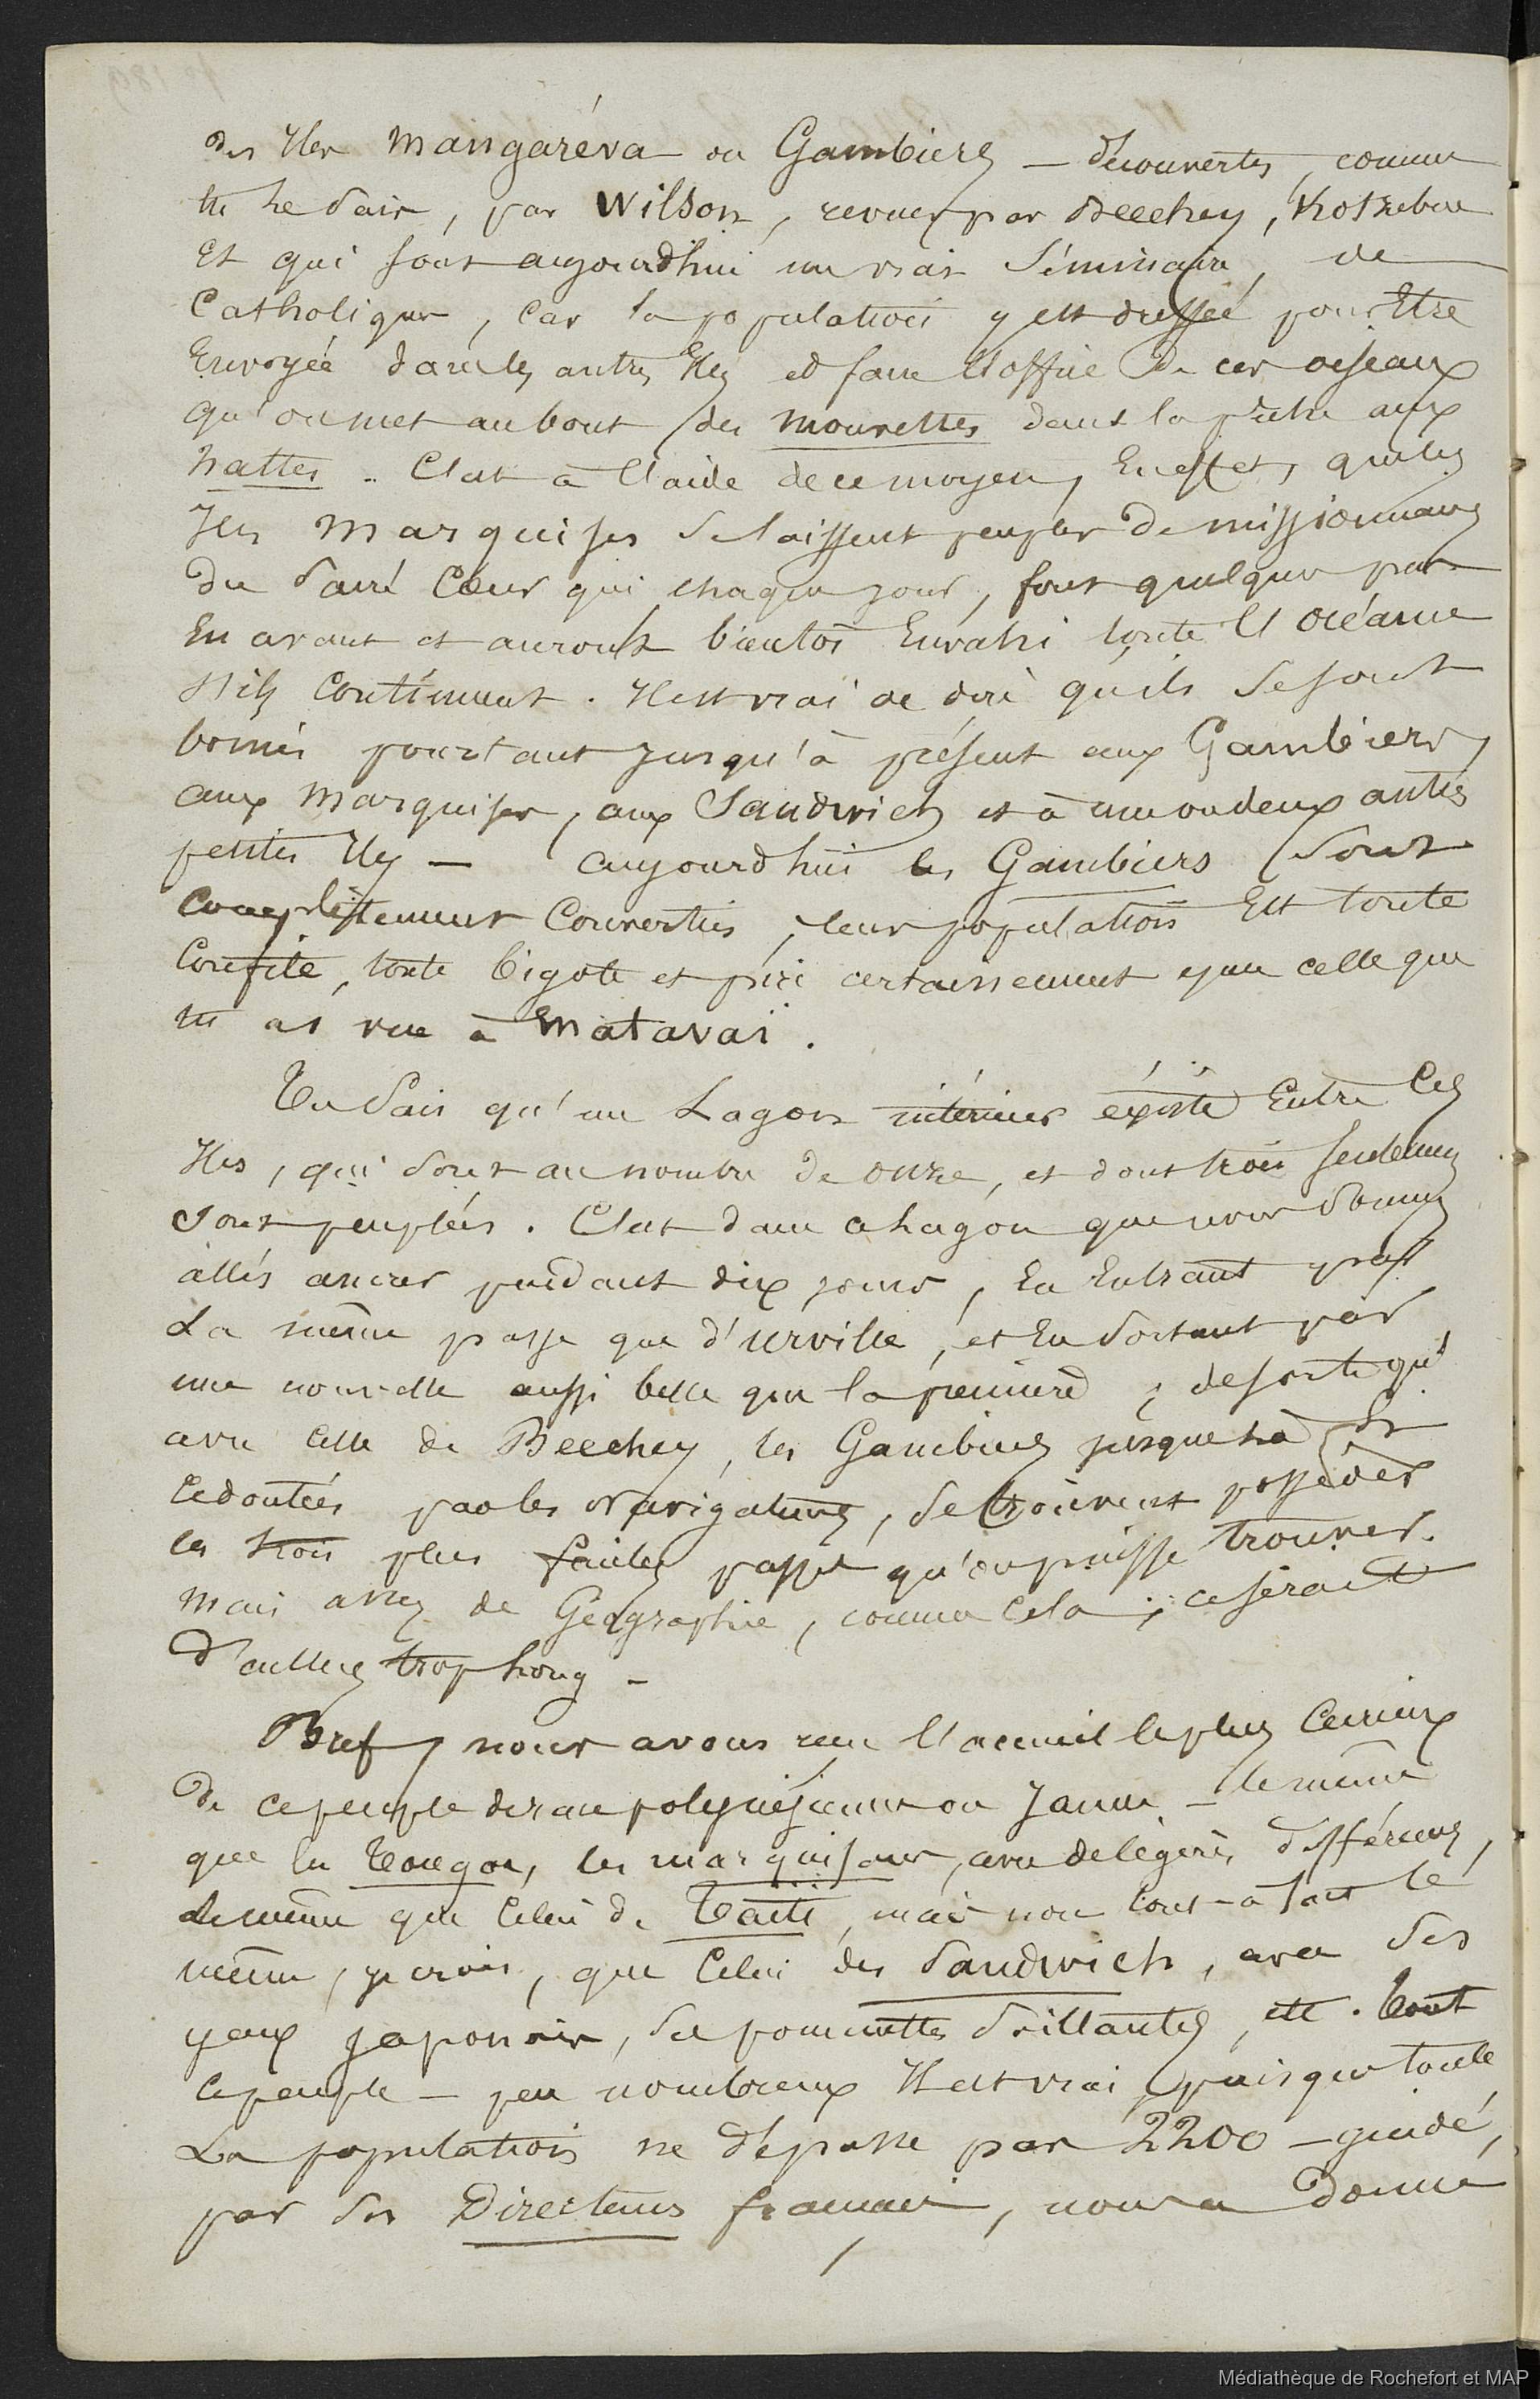 des Iles Mangaréva ou Gambiers — découvertes, comme
tu le sais, par Wilson, revues par Beechey, Kotzebue
Et qui sont aujourd'hui un vrai Séminaire, de
Catholiques, Car la population y est dressée pour Etre
Envoyée dans les autres Iles et faire l'office de ces oiseaux
qu'on met au bout des mourettes dans la pêche aux
nattes. C'est à l'aide de ce moyen, En effet, que les
Iles Marquises se laissent peupler de missionnaires
du Sacré Cœur qui chaque jour, font quelques pas
En avant et auront bientôt Envahi toute l'océanie
s'ils Continuent. Il est vrai de dire qu'ils se sont
bornés pourtant jusqu'à présent aux Gambiers,
aux Marquises, aux Sandwich et à une ou deux autres
petites Iles — aujourd'hui les Gambiers sont
Complètement Converties, leur population Est toute
Confite, toute bigote et pire certainement que celle que
tu as vue à Matavaï.
Tu Sais qu'un Lagon intérieur existe Entre Ces
Iles, qui sont au nombre de onze, et dont trois seulement
sont peuplées. C'est dans ce lagon que nous sommes
allés ancrer pendant dix jours, En Entrant par
La même passe que d'Urville, et En sortant par
une nouvelle aussi belle que la première, de sorte qu'
avec Celle de Beechey, les Gambiers jusque là si
redoutées par les Navigateurs, se trouvent posséder
les trois plus faciles passes qu'on puisse trouver.
Mais assez de Géographie, comme Cela; ce serait
d'ailleurs trop long —
Bref, nous avons reçu l'accueil le plus Curieux
de ce peuple de race polynésienne ou Jaune — le même
que les Tongas, les marquisans, avec de légères différences,
le même que Celui de Taïti, mais non tout-à-fait le
même, je crois, que Celui des Sandwich, avec ses
yeux japonais, ses pommettes Saillantes, etc. Tout
Ce peuple — peu nombreux Il est vrai, puisque toute
La population ne dépasse pas 2200 — guidé,
par ses Directeurs français, nous a donné